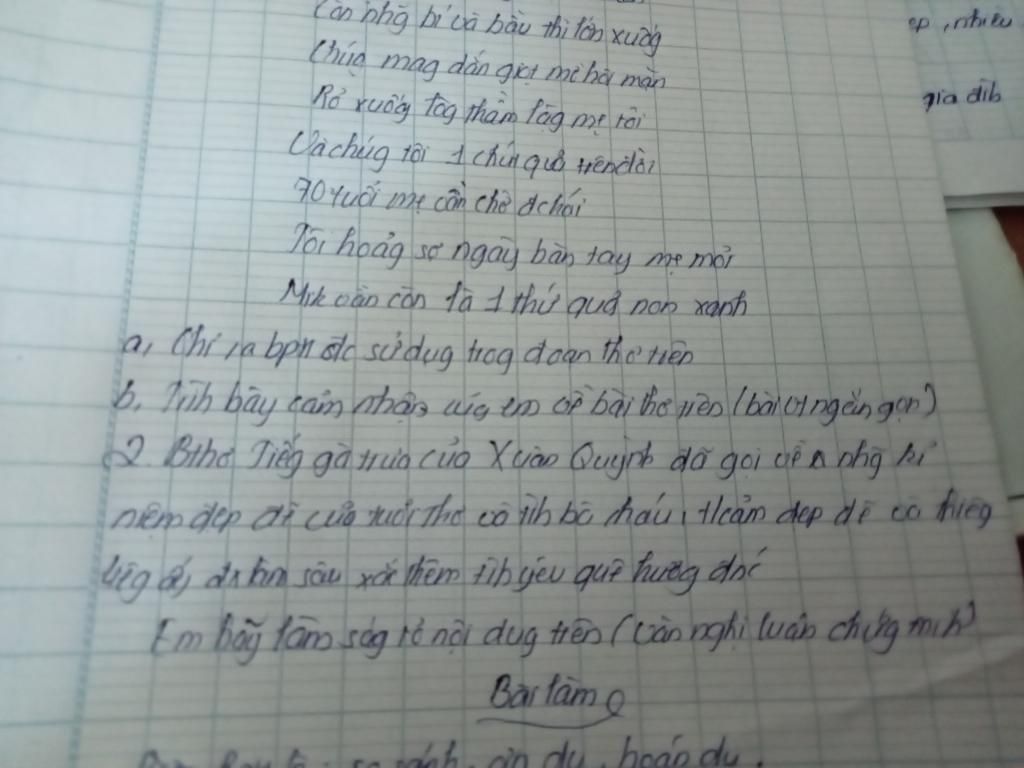 Còn nhg bí và bầu thì lớn xuốg
Chúg mag dág giọt mồ hôi mặn
Rỏ xuốg lòg thầm lặg mẹ tôi
Và chúg tôi 1 thứ quả trên đời
70 tuổi mẹ còn chờ đc hái
Tôi hoảg sợ ngày bàn tay mẹ mỏi
Mìk vẫn còn là 1 thứ quả non xanh
a, Chỉ ra bpnt đc sử dụg trog đoạn thơ trên
b, Trìh bày cảm nhận của em về bài thơ trên (bài vt ngắn gọn)
2. Bthơ Tiếg gà trưa của Xuân Quỳnh đã gọi về n nhg kỉ
niệm đẹp đẽ của tuổi thơ và tìh bà cháu, tcảm đẹp đẽ và thiêg
liêg ấy đã làm sâu sắc thêm tìh yêu quê hươg đnc
Em hãy làm ság tỏ nội dug trên (văn nghị luận chứg mih)
Bài làm
so sánh, ẩn dụ, hoán dụ.
ep, nhiêu
gia đìh